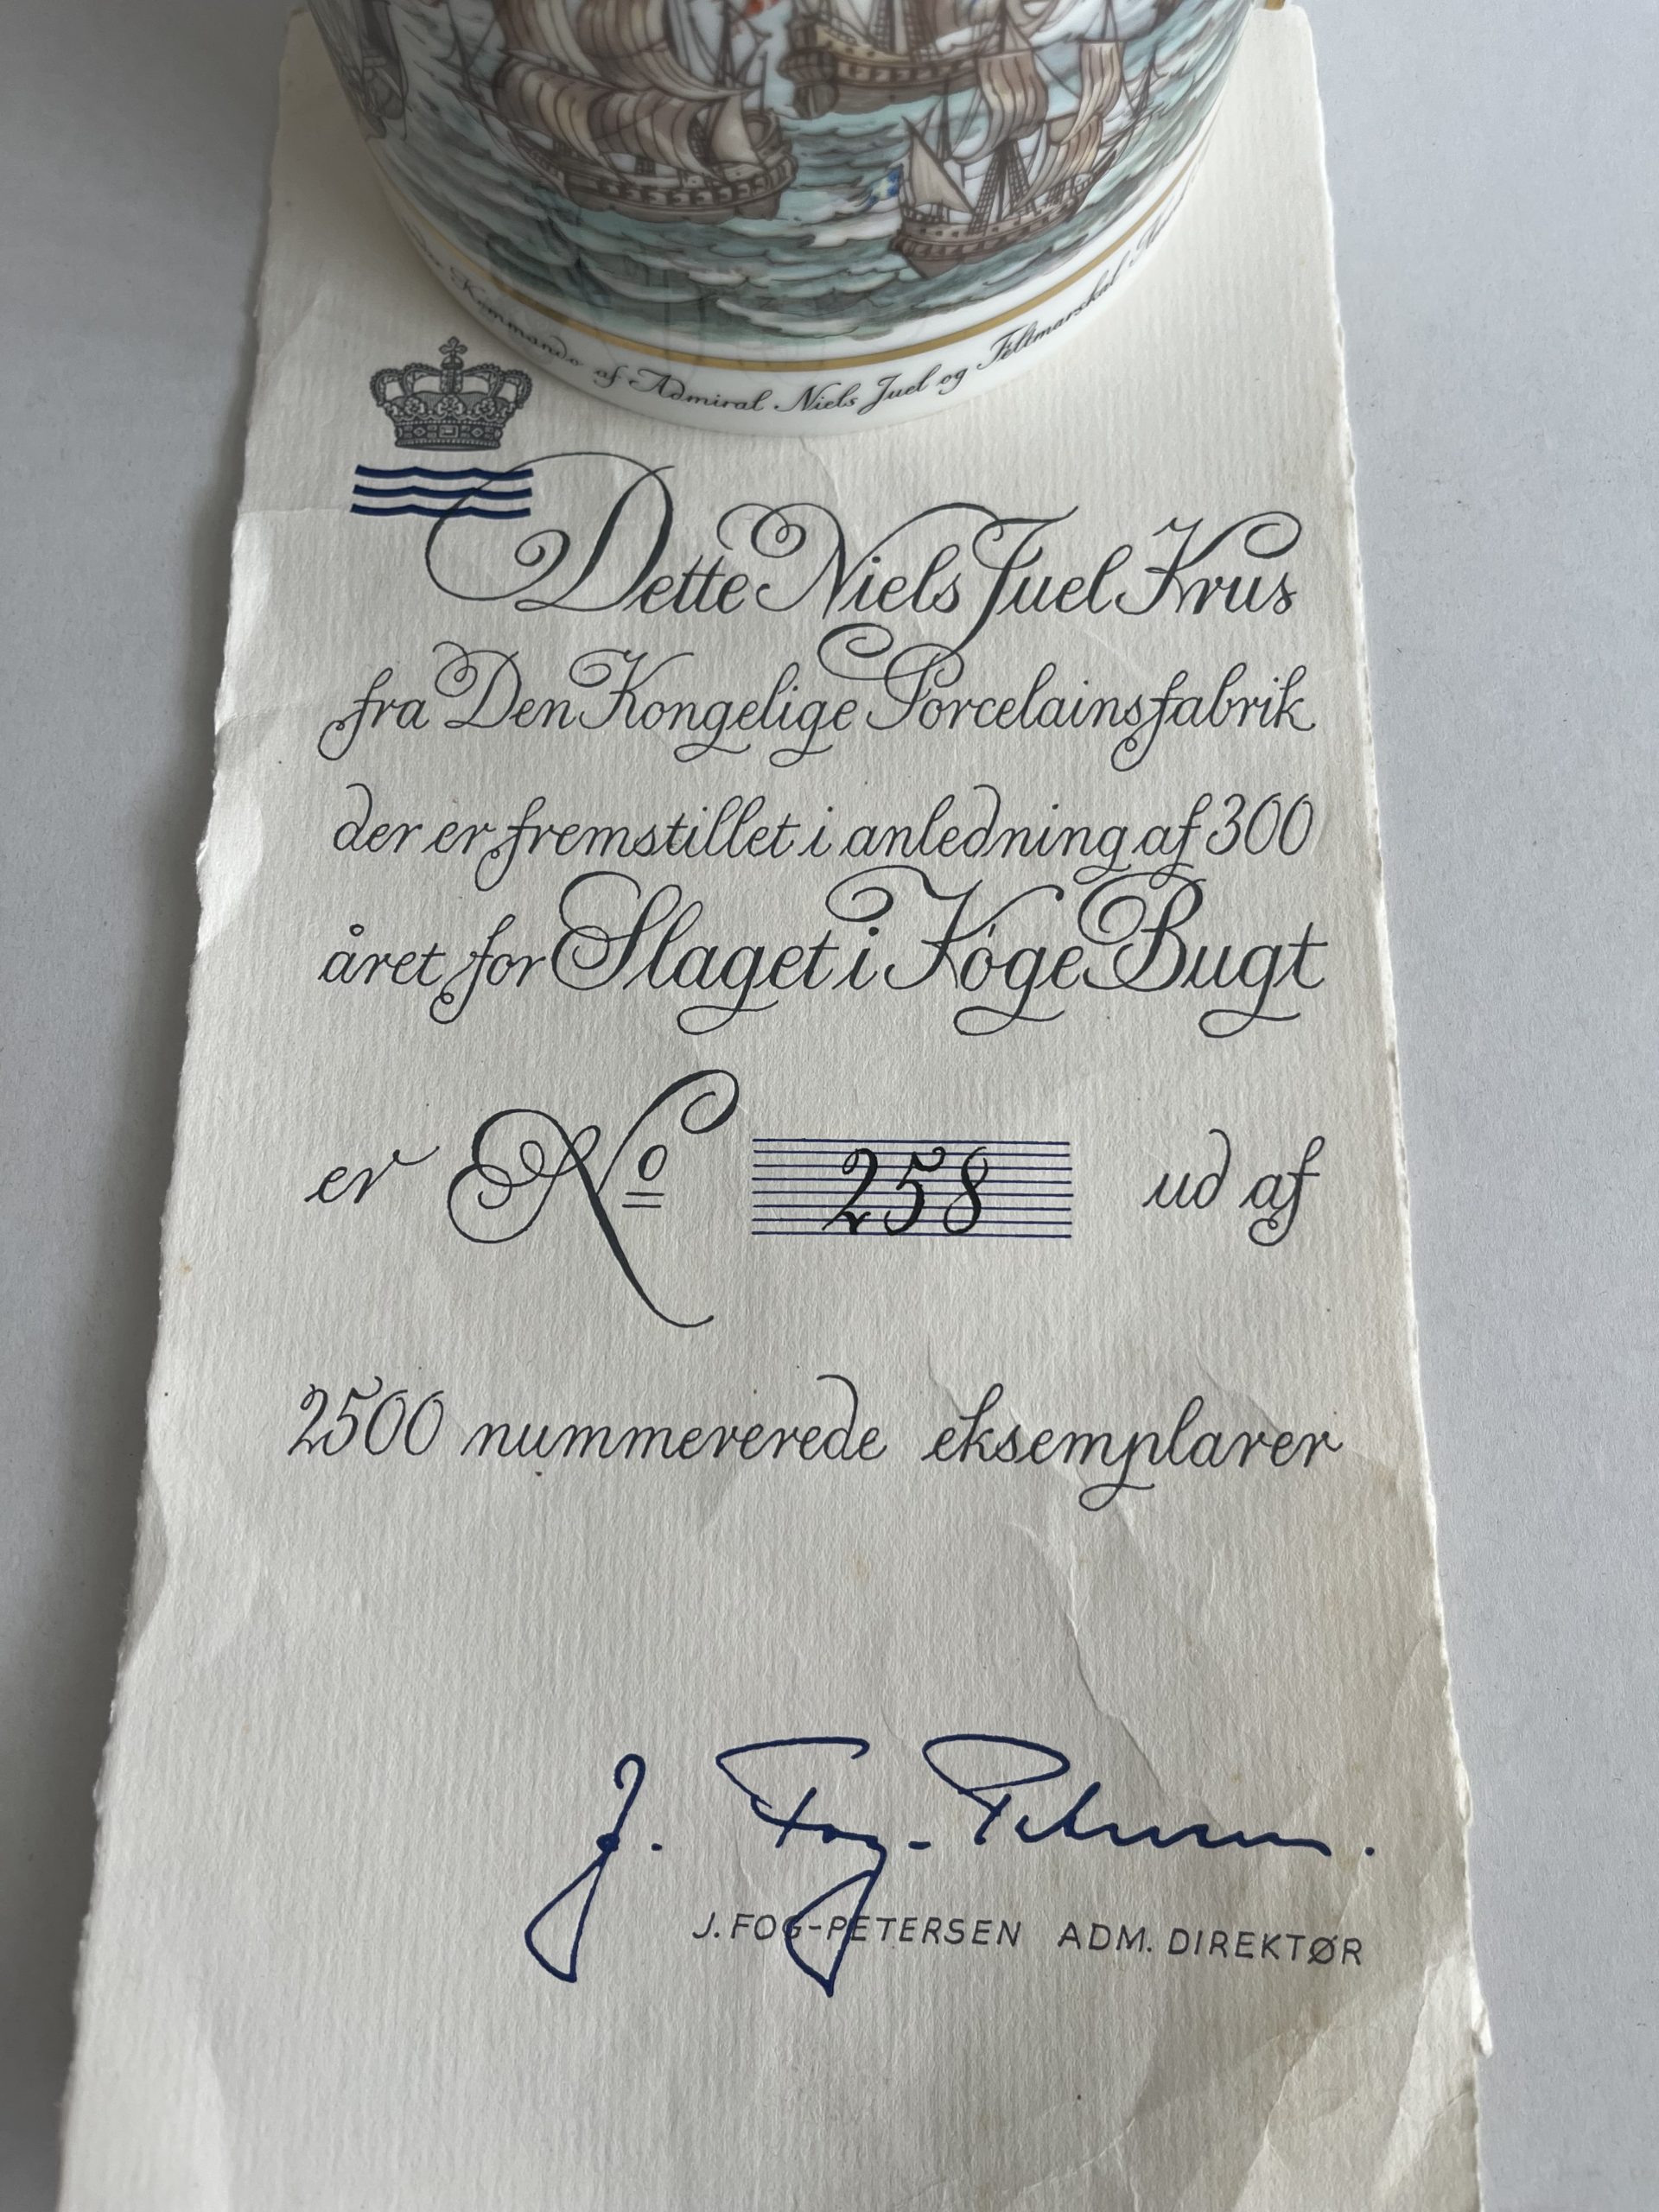 Kommando af Admiral Niels Juel og Feltmarskal
Dette Niels Juel Krus
fra Den Kongelige Porcelainsfabrik
der er fremstillet i anledning af 300
året for Slaget i Køge Bugt
er No 258 ud af
2500 nummererede eksemplarer
J. Fog-Petersen.
J. FOG-PETERSEN ADM. DIREKTØR